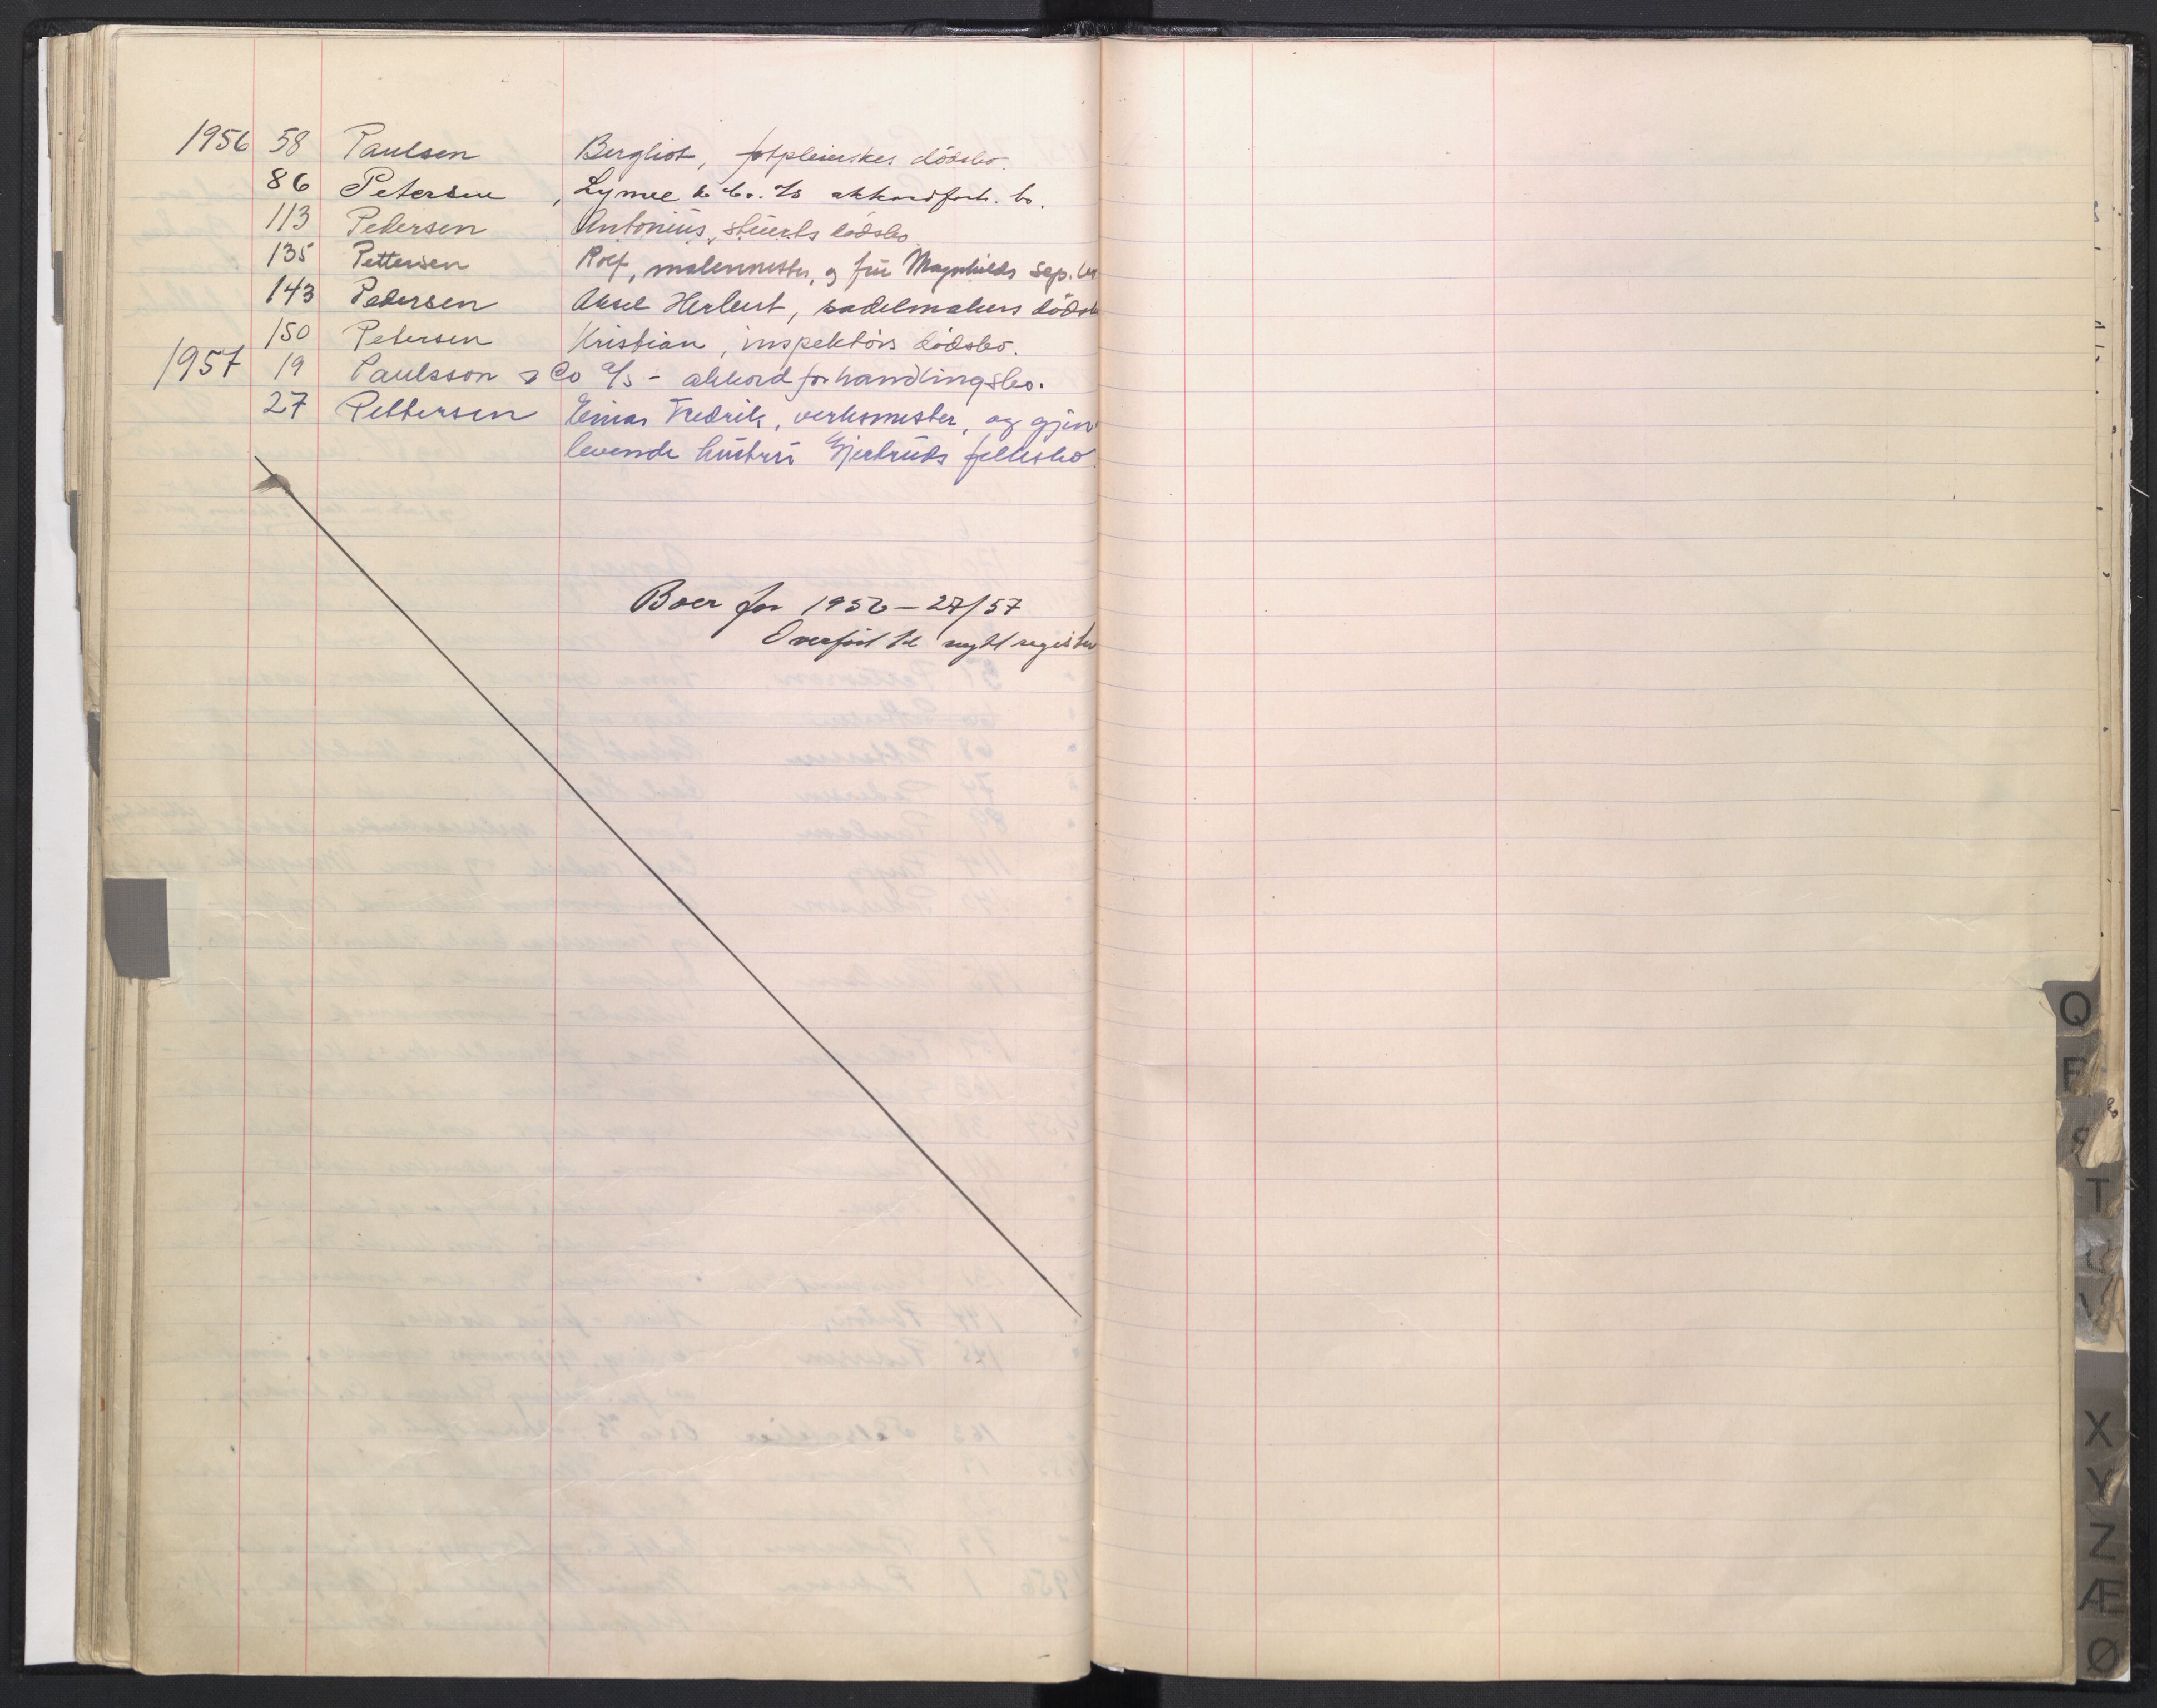 1956 58 Paulsen Bergliot, fotpleierskes dödsbo.
86 Petersen, Lymee & Co. A/S akkordforh. bo.
113 Pedersen Antonius, stuerts dödsbo
135 Pettersen Rolf, malermester, og fru Magnhilds sep. bo
143 Pedersen Aksel Herbert, sadelmakers dödsb
150 Petersen Kristian, inspektörs dödsbo.
1957 19 Paulsson & Co A/S - akkordforhandlingsbo.
27 Pettersen Einar Fredrik, verksmester, og gjen
levende hustru Gjertruds fellesbo
Boer for 1956 – 27/57
Overfört til nytt register
Q
R
S
T
U
V
X
Y
Z
Æ
Ø